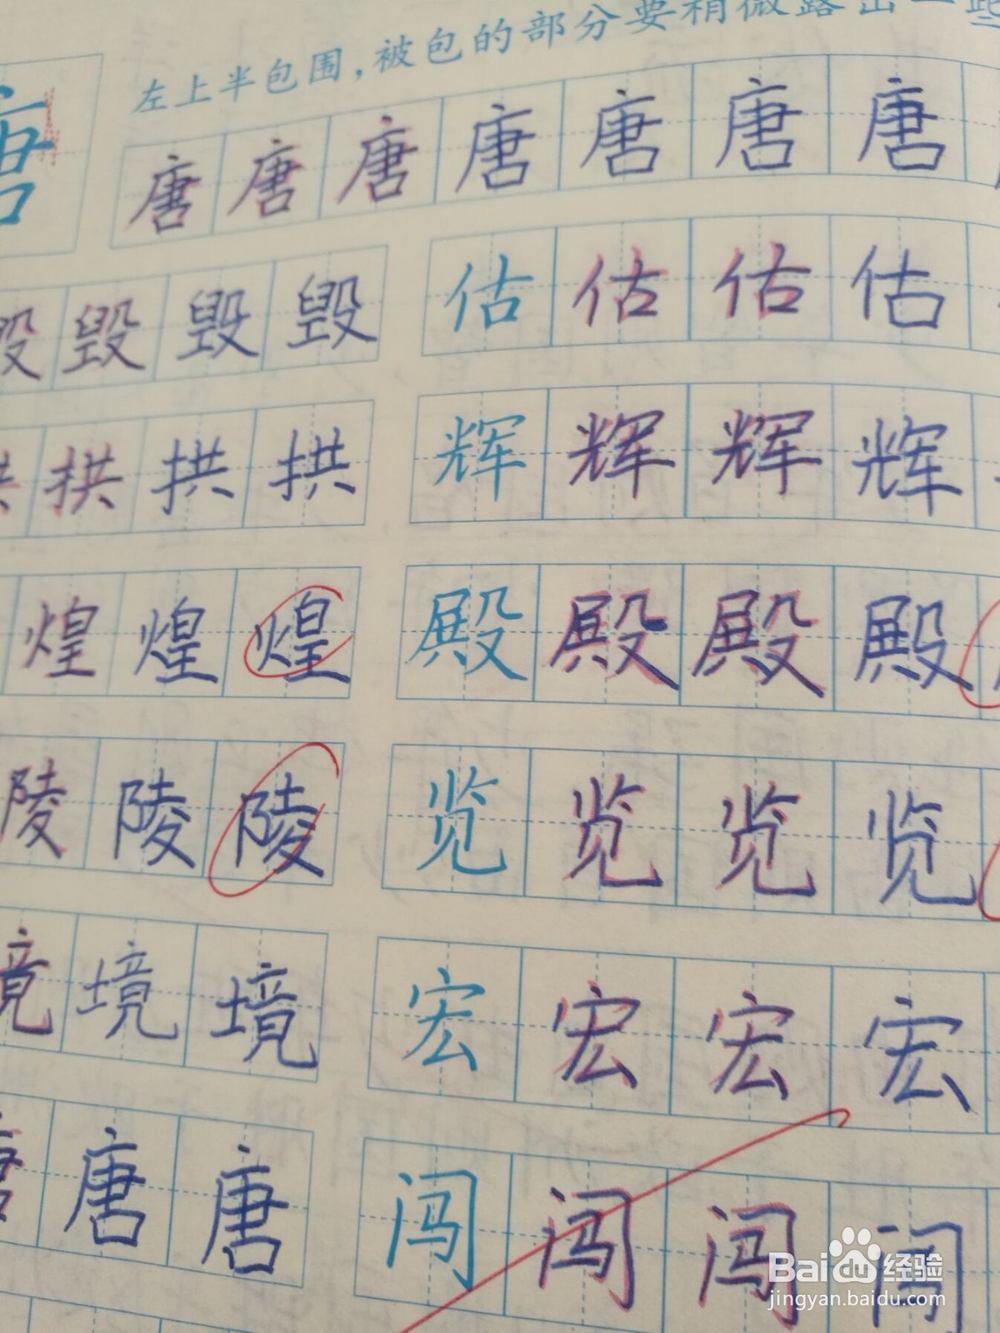 左上半包围，被包的部分要稍微露出一些
唐 唐 唐 唐 唐 唐 唐 唐
毁 毁 毁 毁 估 估 估 估
拱 拱 拱 拱 辉 辉 辉 辉
煌 煌 煌 殿 殿 殿 殿
陵 陵 陵 览 览 览 览
境 境 境 宏 宏 宏 宏
唐 唐 唐 闯 闯 闯 闯
Baidu 经验
jingyan.baidu.com